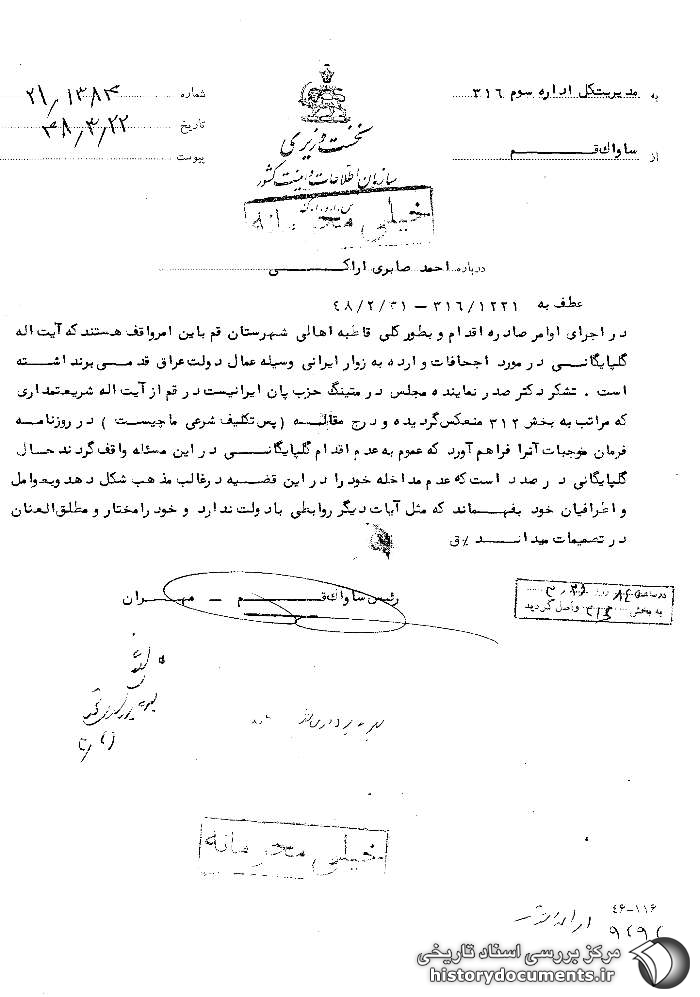 به مدیریتکل اداره سوم ۳۱۶
شماره ۲۱/۱۳۸۴
از ساواك قم
تاریخ ۴۸/۳/۲۲
پیوست
نخست وزیری
سازمان اطلاعات و امنیت کشور
س.ا.و.ا.ک
خیلی محرمانه
درباره احمد صابری اراکی
عطف به ۳۱۶/۱۲۲۱ – ۴۸/۲/۳۱
در اجرای اوامر صادره اقدام و بطور کلی قاطبه اهالی شهرستان قم باین امر واقف هستند که آیت اله
گلپایگانی در مورد اجحافات وارده به زوار ایرانی وسیله عمال دولت عراق قدمی برنداشته
است . تشکر دکتر صدر نماینده مجلس در متینگ حزب پان ایرانیست در قم از آیت اله شریعتمداری
که مراتب به بخش ۳۱۲ منعکس گردیده و درج مقاله (پس تکلیف شرعی ما چیست ) در روزنامه
فرمان موجبات آنرا فراهم آورد که عموم به عدم اقدام گلپایگانی در این مسئله واقف گردند حال
گلپایگانی در صدد است که عدم مداخله خود را در این قضیه در غالب مذهب شکل دهد و بعوامل
و اطرافیان خود بفهماند که مثل آیات دیگر روابطی با دولت ندارد و خود را مختار و مطلق العنان
در تصمیمات میداند ٪ق
رئیس ساواك قم – مهران
در ساعت
به بخش ۳۱۶ واصل گردید
خیلی محرمانه
۴۶-۱۱۶
مرکز بررسی اسناد تاریخی
historydocuments.ir